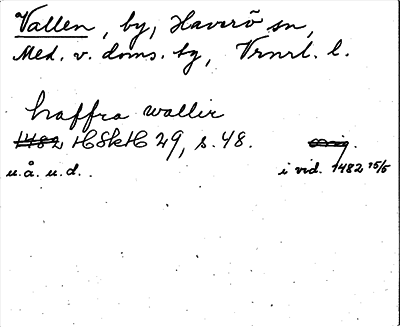 Vallen, by, Haverö sn,
Med. v. doms. tg, Vrnrl. l.
haffra wallir
1482 HSkH 29, s. 48. orig.
u.å. u.d. . i vid. 1482 15/5